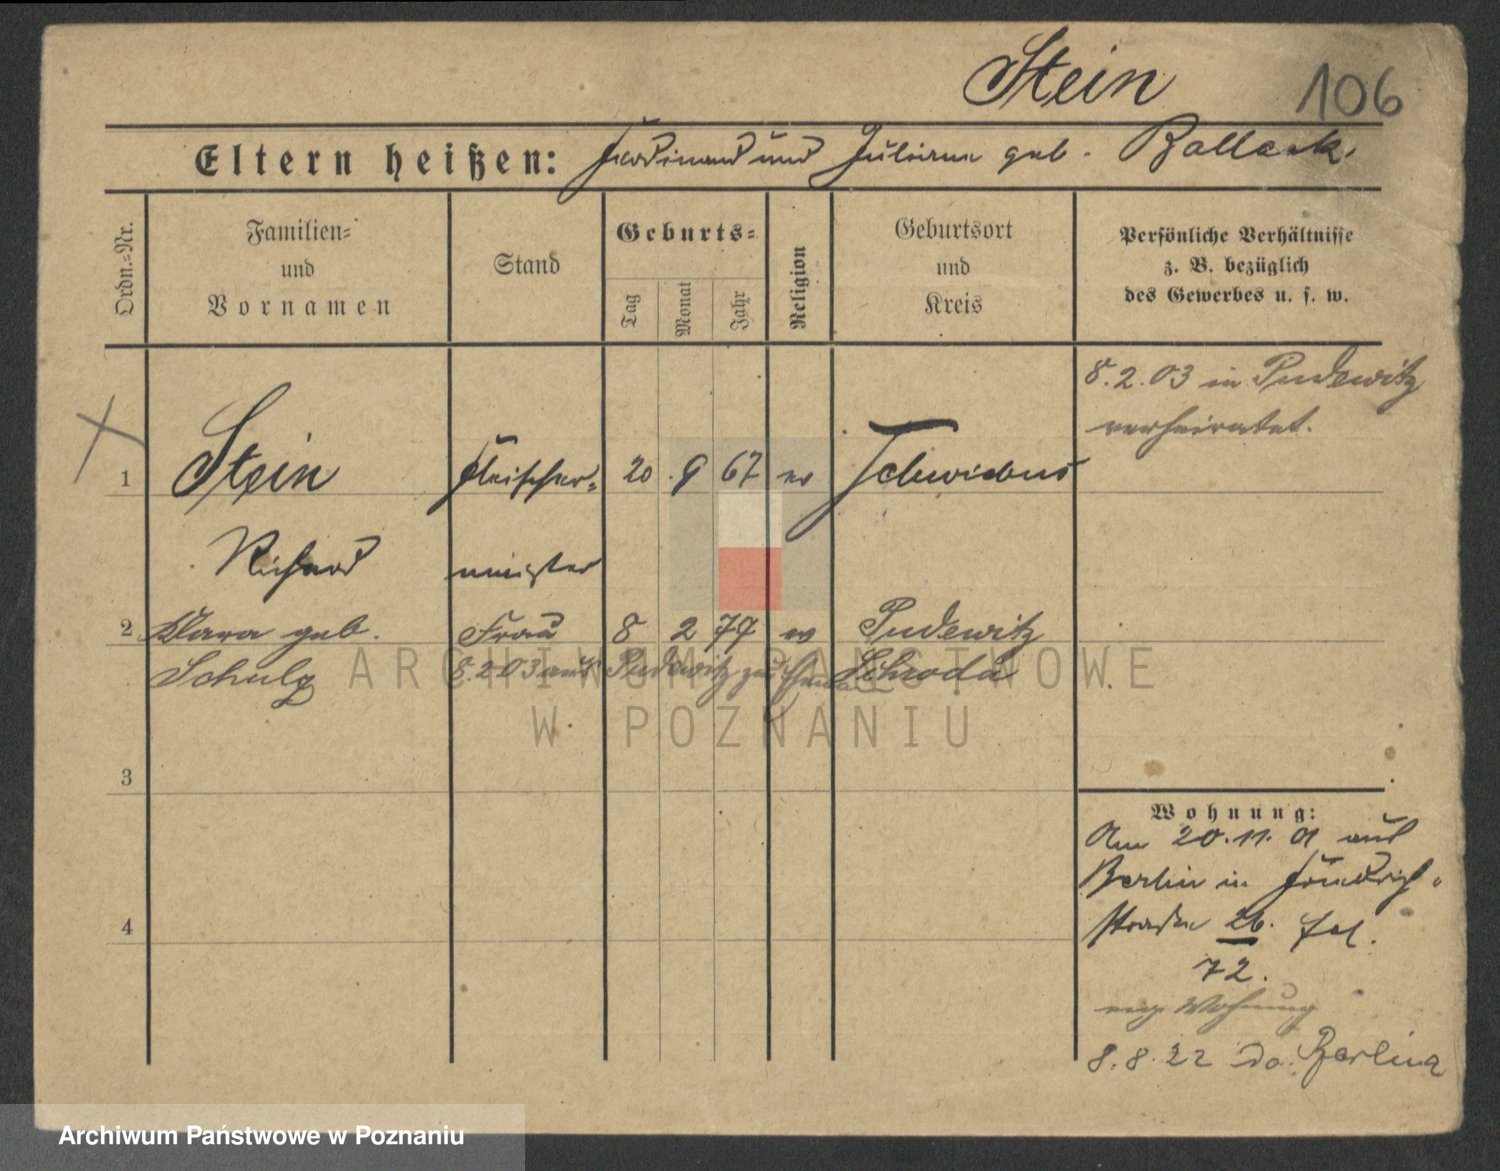 Stein 106
Eltern heißen: Ferdinand und Juliana geb. Ballack.
Ordn.-Nr.
Familien-
und
Vornamen
Stand
Geburts-
Tag
Monat
Jahr
Religion
Geburtsort
und
Kreis
Persönliche Verhältnisse
z. B. bezüglich
des Gewerbes u. s. w.
8.2.03 in Pudewitz
verheiratet.
1 Stein Fleischer- 20. 9 67 ev Schwiebus
Richard meister
2 Klara geb. Frau 8 2 77 ev Pudewitz
Schulz 8.2.03 aus Pudewitz zum Schroda
3
4
Wohnung:
Am 20.11.01 aus
Berlin in Friedrich-
straße 26.
72.
Wohnung
8.8.22 Berlin
ARCHIWUM PAŃSTWOWE
W POZNANIU
Archiwum Państwowe w Poznaniu